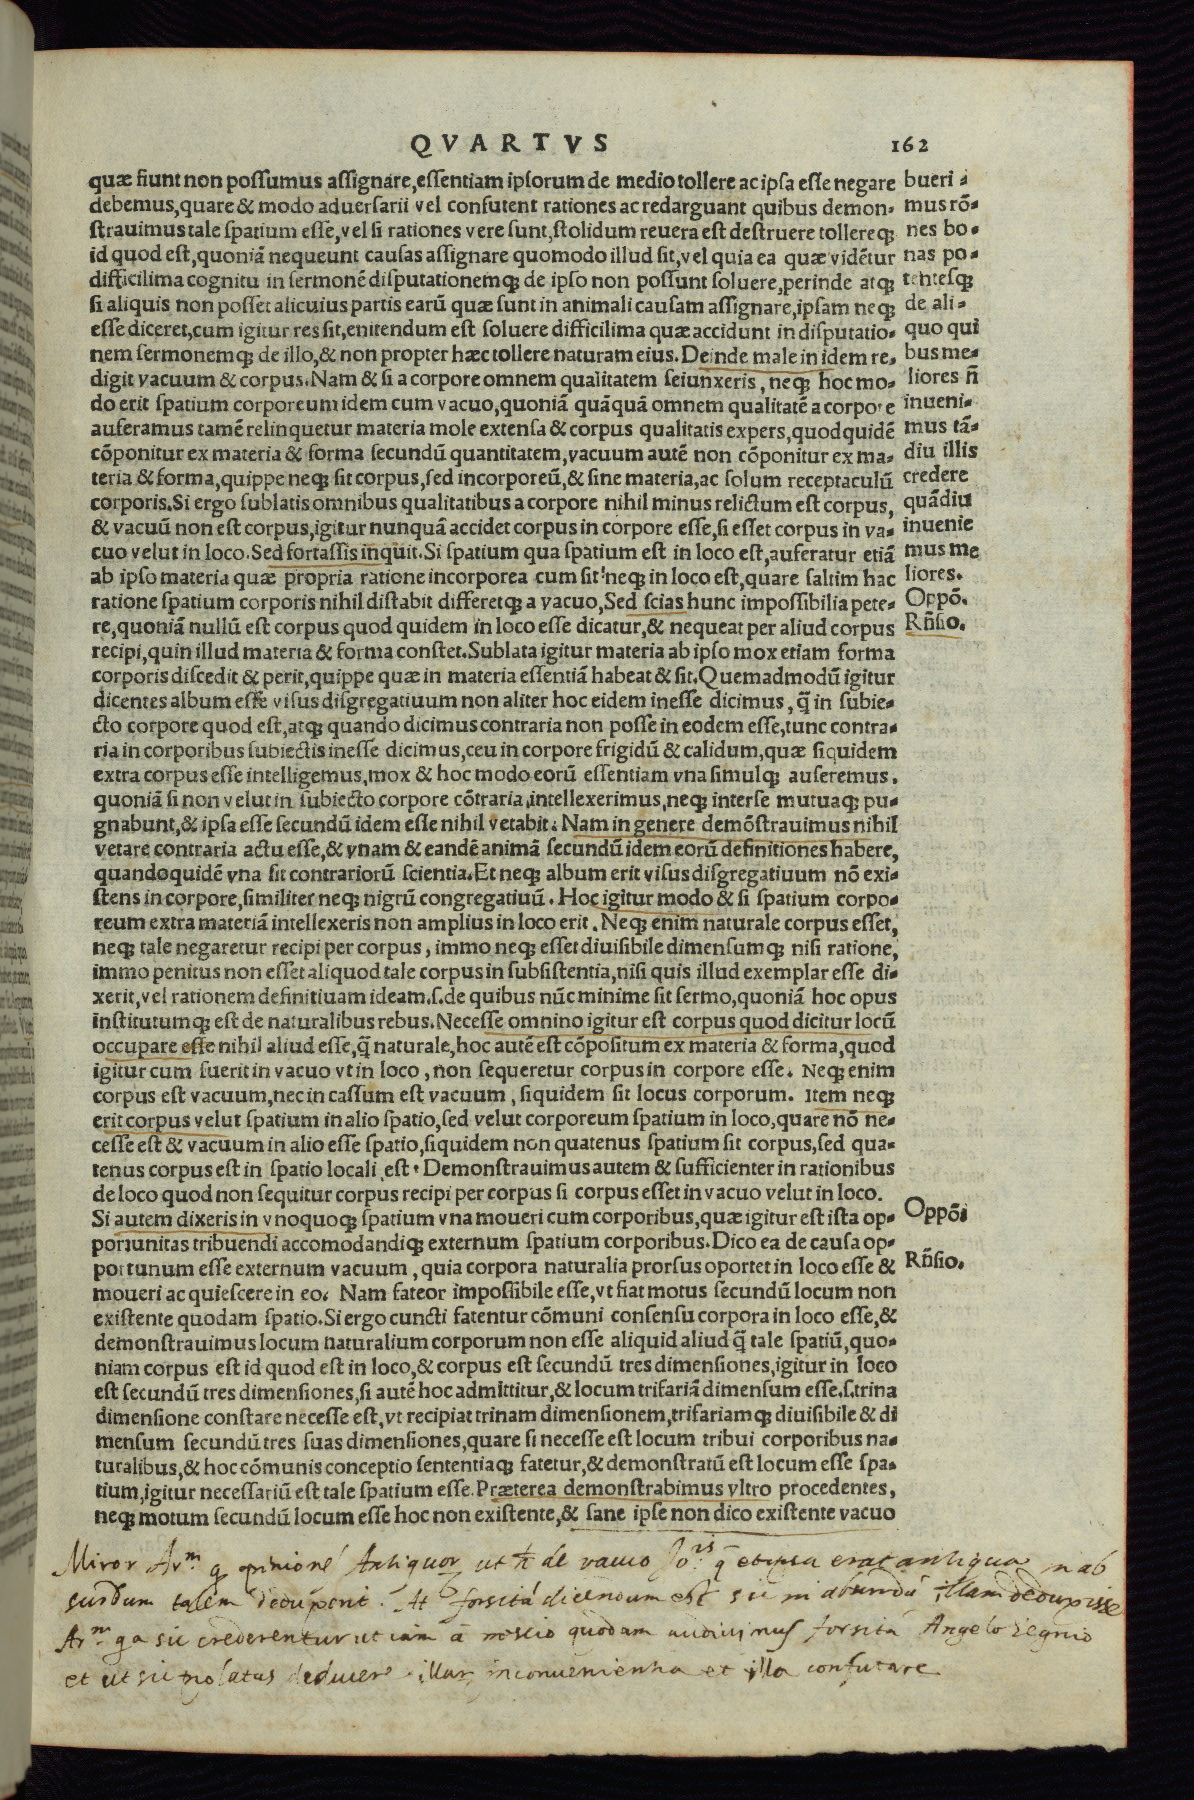 QVARTVS 162
quæ fiunt non possumus assignare,essentiam ipsorum de medio tollere ac ipsa esse negare
debemus,quare & modo aduersarii vel confutent rationes ac redarguant quibus demon-
strauimus tale spatium esse,vel si rationes vere sunt,stolidum reuera est destruere tollereqȝ
id quod est,quoniã nequeunt causas assignare quomodo illud sit,vel quia ea quæ vidẽtur
difficilima cognitu in sermonẽ disputationemqȝ de ipso non possunt soluere,perinde atqȝ
si aliquis non posset alicuius partis earũ quæ sunt in animali causam assignare,ipsam neqȝ
esse diceret,cum igitur res sit,enitendum est soluere difficilima quæ accidunt in disputatio-
nem sermonemqȝ de illo,& non propter hæc tollere naturam eius.Deinde male in idem re-
digit vacuum & corpus.Nam & si a corpore omnem qualitatem seiunxeris, neqȝ hoc mo-
do erit spatium corporeum idem cum vacuo,quoniã quãquã omnem qualitatẽ a corpore
auferamus tamẽ relinquetur materia mole extensa & corpus qualitatis expers,quodquidẽ
cõponitur ex materia & forma secundũ quantitatem,vacuum autẽ non cõponitur ex ma-
teria & forma,quippe neqȝ sit corpus,sed incorporeũ,& sine materia,ac solum receptaculũ
corporis.Si ergo sublatis omnibus qualitatibus a corpore nihil minus relictum est corpus,
& vacuũ non est corpus,igitur nunquã accidet corpus in corpore esse,si esset corpus in va-
cuo velut in loco.Sed fortassis inquit.Si spatium qua spatium est in loco est,auferatur etiã
ab ipso materia quæ propria ratione incorporea cum sit neqȝ in loco est,quare saltim hac
ratione spatium corporis nihil distabit differetqȝ a vacuo,Sed scias hunc impossibilia pete-
re,quoniã nullũ est corpus quod quidem in loco esse dicatur,& nequeat per aliud corpus
recipi,quin illud materia & forma constet.Sublata igitur materia ab ipso mox etiam forma
corporis discedit & perit,quippe quæ in materia essentiã habeat & sit.Quemadmodũ igitur
dicentes album esse visus disgregatiuum non aliter hoc eidem inesse dicimus, q̃ in subie-
cto corpore quod est,atqȝ quando dicimus contraria non posse in eodem esse,tunc contra-
ria in corporibus subiectis inesse dicimus,ceu in corpore frigidũ & calidum,quæ siquidem
extra corpus esse intelligemus,mox & hoc modo eorũ essentiam vna simulqȝ auferemus.
quoniã si non velut in subiecto corpore cõtraria,intellexerimus,neqȝ interse mutuaqȝ pu-
gnabunt,& ipsa esse secundũ idem esse nihil vetabit. Nam in genere demõstrauimus nihil
vetare contraria actu esse,& vnam & eandẽ animã secundũ idem eorũ definitiones habere,
quandoquidẽ vna sit contrariorũ scientia.Et neqȝ album erit visus disgregatiuum nõ exi-
stens in corpore,similiter neqȝ nigrũ congregatiuũ. Hoc igitur modo & si spatium corpo-
reum extra materiã intellexeris non amplius in loco erit. Neqȝ enim naturale corpus esset,
neqȝ tale negaretur recipi per corpus, immo neqȝ esset diuisibile dimensumqȝ nisi ratione,
immo penitus non esset aliquod tale corpus in subsistentia,nisi quis illud exemplar esse di-
xerit,vel rationem definitiuam ideam.s.de quibus nũc minime sit sermo,quoniã hoc opus
institutumqȝ est de naturalibus rebus.Necesse omnino igitur est corpus quod dicitur locũ
occupare esse nihil aliud esse,q̃ naturale,hoc autẽ est cõpositum ex materia & forma,quod
igitur cum fuerit in vacuo vt in loco, non sequeretur corpus in corpore esse. Neqȝ enim
corpus est vacuum,nec in cassum est vacuum, siquidem sit locus corporum. Item neqȝ
erit corpus velut spatium in alio spatio,sed velut corporeum spatium in loco,quare nõ ne-
cesse est & vacuum in alio esse spatio,siquidem non quatenus spatium sit corpus,sed qua-
tenus corpus est in spatio locali,est. Demonstrauimus autem & sufficienter in rationibus
de loco quod non sequitur corpus recipi per corpus si corpus esset in vacuo velut in loco.
Si autem dixeris in vnoquoqȝ spatium vna moueri cum corporibus,quæ igitur est ista op-
portunitas tribuendi accomodandiqȝ externum spatium corporibus.Dico ea de causa op-
portunum esse externum vacuum, quia corpora naturalia prorsus oportet in loco esse &
moueri ac quiescere in eo. Nam fateor impossibile esse,vt fiat motus secundũ locum non
existente quodam spatio.Si ergo cuncti fatentur cõmuni consensu corpora in loco esse,&
demonstrauimus locum naturalium corporum non esse aliquid aliud q̃ tale spatiũ,quo-
niam corpus est id quod est in loco,& corpus est secundũ tres dimensiones,igitur in loco
est secundũ tres dimensiones,si autẽ hoc admittitur,& locum trifariã dimensum esse.s.trina
dimensione constare necesse est,vt recipiat trinam dimensionem,trifariamqȝ diuisibile & di
mensum secundũ tres suas dimensiones,quare si necesse est locum tribui corporibus na-
turalibus,& hoc cõmunis conceptio sententiaqȝ fatetur,& demonstratũ est locum esse spa-
tium,igitur necessariũ est tale spatium esse.Præterea demonstrabimus vltro procedentes,
neqȝ motum secundũ locum esse hoc non existente,& sane ipse non dico existente vacuo
bueri-
mus rõ-
nes bo-
nas po-
tentesqȝ
de ali-
quo qui
bus me-
liores ñ
inueni-
mus tã-
diu illis
credere
quãdiu
inuenie
mus me
liores.
Oppõ.
Rñsio.
Oppõi
Rñsio.
Miror opinionẽ Antiquor ut de vacuo antiqua in ab
surdum talem forsitã dicendum est illam deduxisse
sic crederentur ut iam a nescio quodam audivimus forsitã Angelo
et ut sic deducere illar inconvenientia et illa confutare